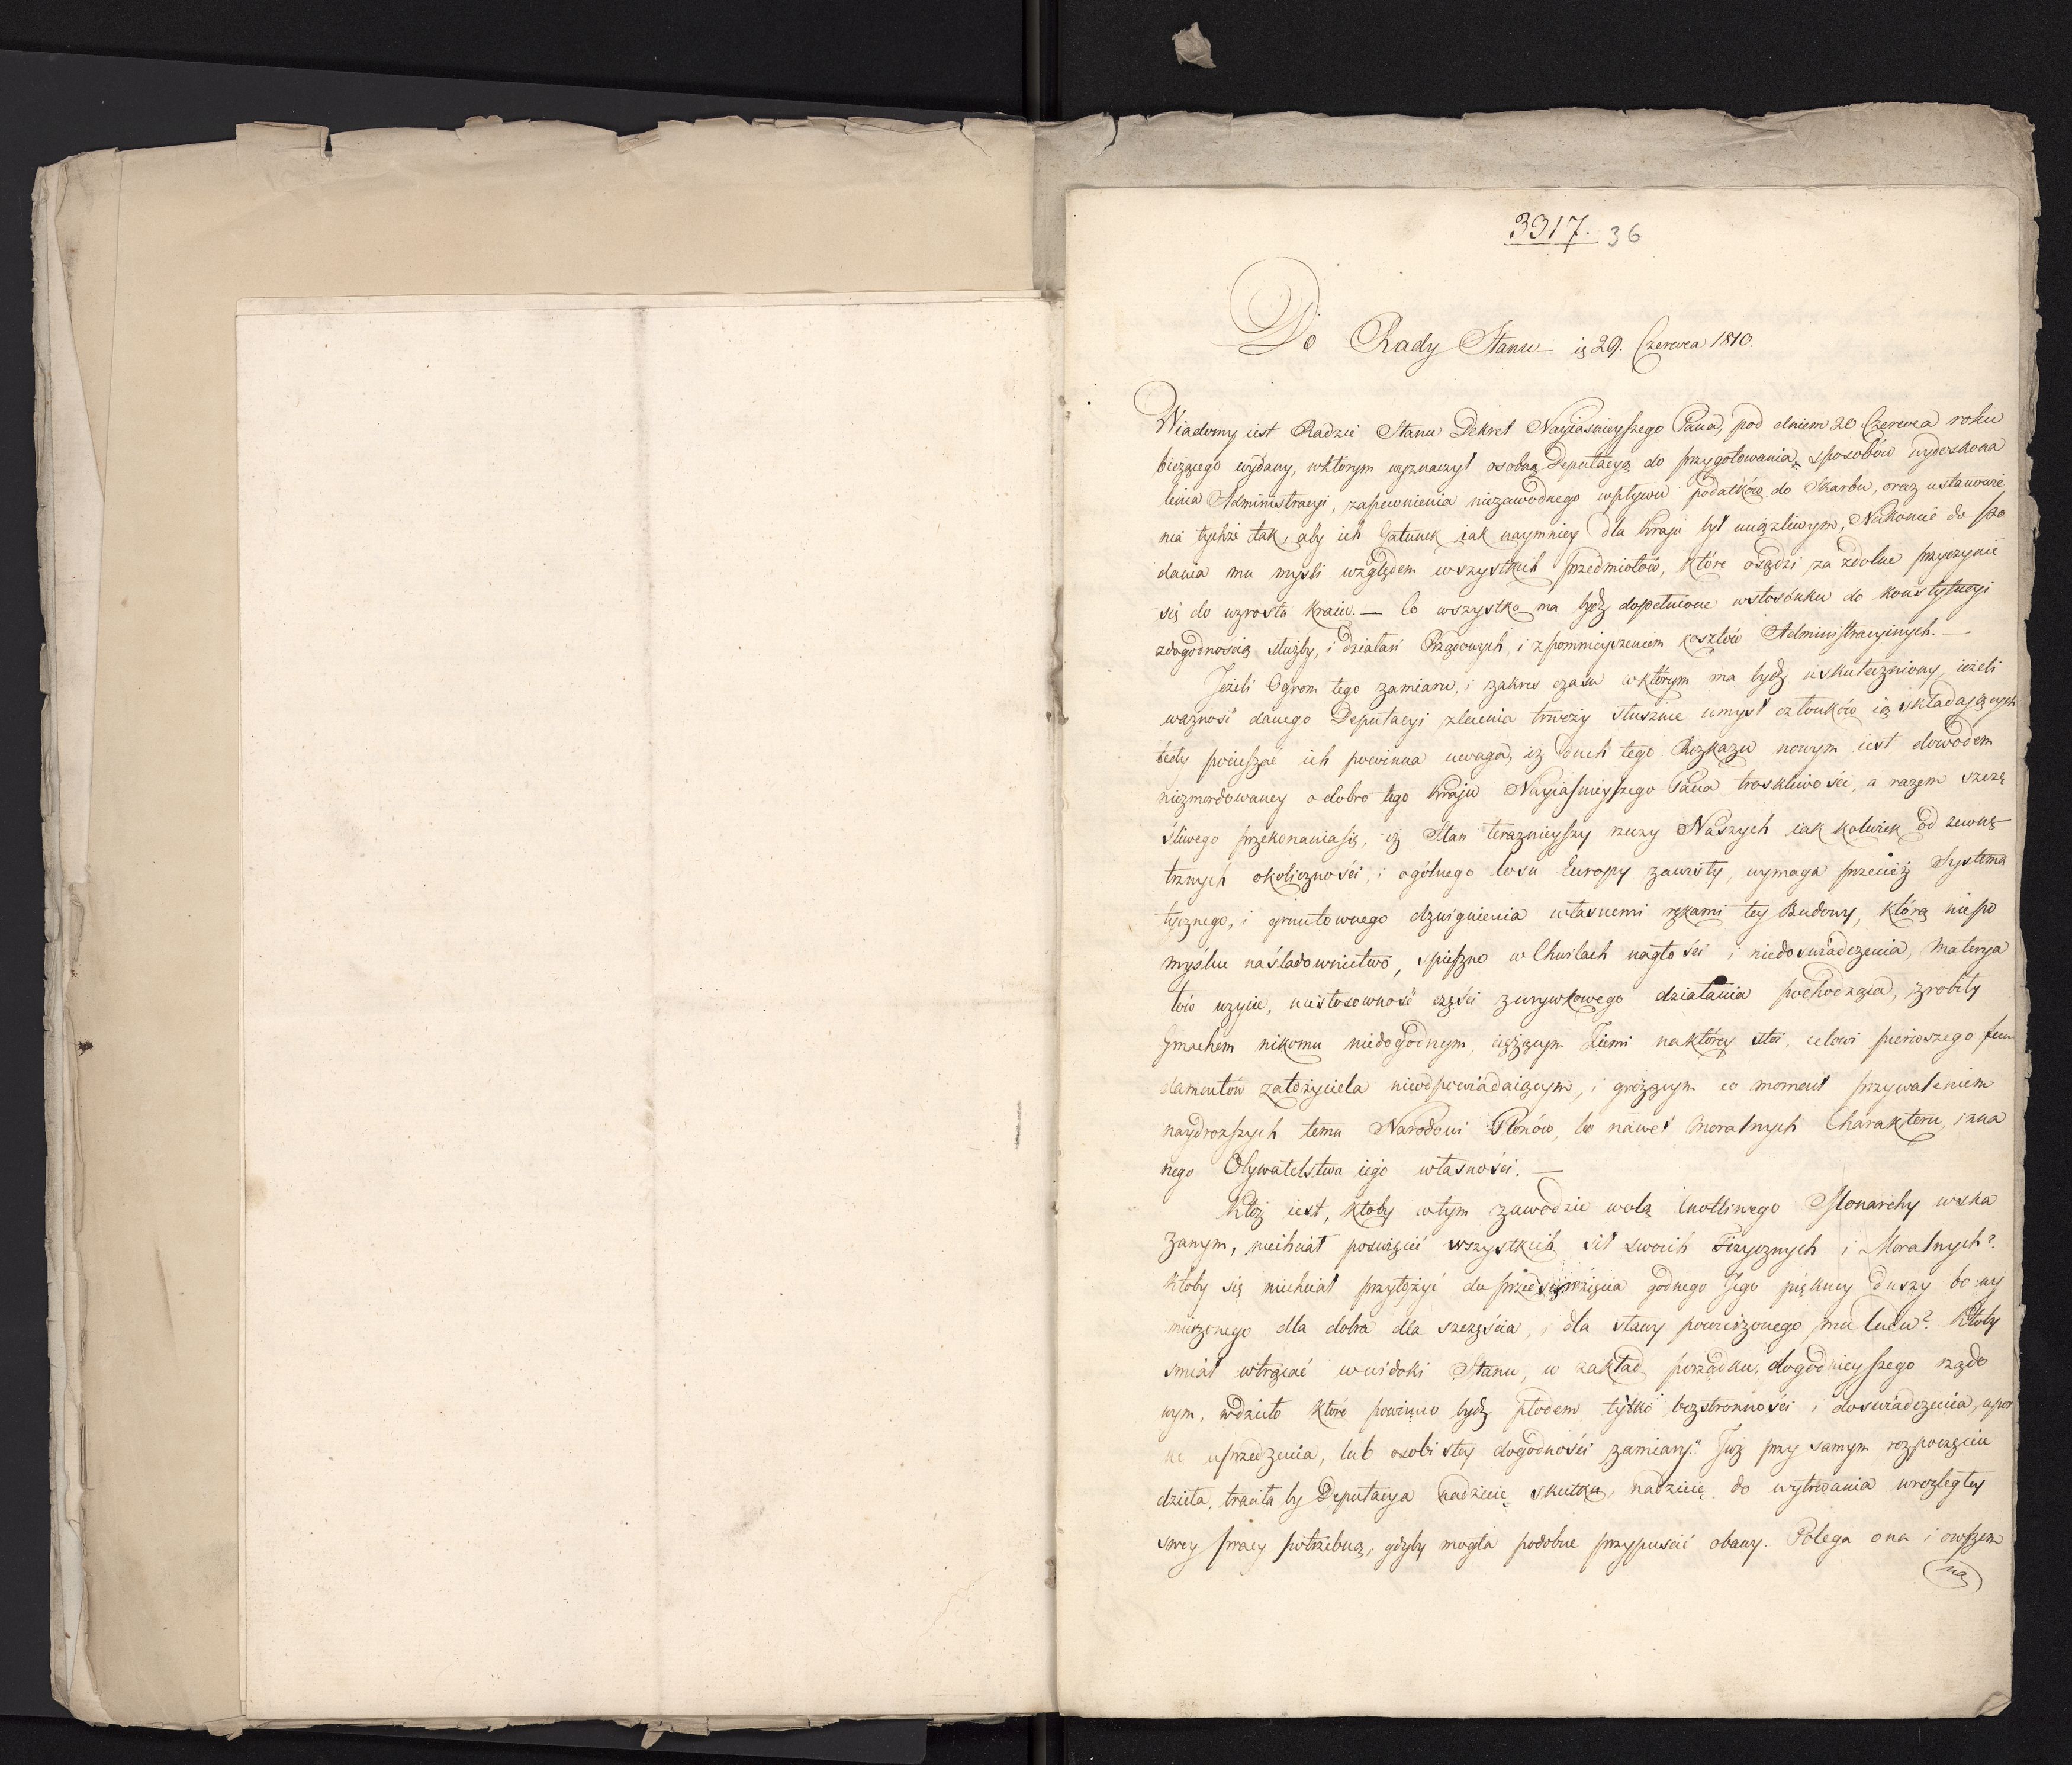 3317. 36
Do Rady Stanu is 29. Czerwca 1810.
Wiadomy iest Radzie Stanu Dekret Nayiasnieyszego Pana, pod dniem 20 Czerwca roku
bieżącego wydany, wktorym wyznaczył osobną Deputacyą do przygotowania sposobów wydoskona
lenia Administracyi, zapewnienia niezawodnego wpływu podatków do Skarbu, oraz ustanowie
nia tychże tak, aby ich Gatunek iak naymniey dla kraju był uciążliwym, Nakoniec do po
dania mu myśli względem wszystkich przedmiotów, które osądzi za zdolne przyczynić
się do wzrostu kraiu. — Co wszystko ma bydź dopełnione wstosunku do konstytucyi
zdogodnością służby, i działań Rządowych, i zpomnieyszeniem kosztów Administracyinych. —
Jeżeli Ogrom tego zamiaru, i zakres czasu wktórym ma bydź uskuteczniony, ieżeli
wazność danego Deputacyi zlecenia trwoży słusznie umysł członków ią składaiących
tedy pocieszać ich powinna uwaga, iż duch tego Rozkazu nowym iest dowodem
niezmordowaney odobro tego kraju Nayiaśnieyszego Pana troskliwości, a razem szczę
śliwego przekonania się, iż Stan teraznieyszy rzeczy Naszych iak kolwiek od zewnę
trznych okoliczności, i ogólnego losu Europy zawisły, wymaga przecież Systema
tycznego, i gruntownego dzwignienia własnemi rękami tey Budowy, którą niepo
myślne naśladownictwo, spieszne w Chwilach nagłości i niedoswiadczenia, materya
łów użycie, niestosowność części zurywkowego działania pochodząca, zrobiły
Gmachem nikomu niedogodnym, ciążącym Ziemi naktórey stoi, celowi pierwszego fun
damentów założyciela nieodpowiadaiącym, i grożącym co moment przywaleniem
naydroższych temu Narodowi Plonów, bo nawet moralnych Charakteru, i zna
nego Obywatelstwa iego własności. —
Któż iest, ktoby wtym zawodzie wolą Cnotliwego Monarchy wska
zanym, niechciał poswięcić wszystkich sił swoich Fizycznych i Moralnych?
Ktoby się niechciał przyłożyć do przedsięwzięcia godnego Jego piękney duszy bo wy
mierzonego dla dobra dla szczęścia, i dla sławy powierzonego mu ludu? Ktoby
smiał wtrącać wwidoki Stanu, w zakład porządku, dogodnieyszego rządo
wym, wdzieło które powinno bydź płodem tylko bezstronności i doswiadczenia, upor
ne uprzedzenia, lub osobistey dogodności zamiary? Już przy samym rozpoczęciu
dzieła, traciła by Deputacya nadzieię skutku, nadzieię do wytrwania wrozległey
swey pracy potrzebną, gdyby mogła podobne przypuscić obawy. Polega ona i owszem
na